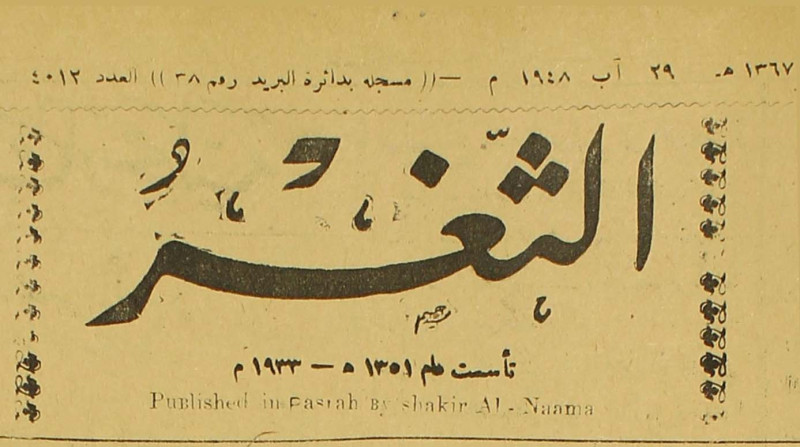 ١٣٦٧ هـ ٢٩ آب ١٩٤٨ م —(( مسجله بدائرة البريد رقم ٣٨ )) العدد ٤٠١٢
الثَّغْرُ
تأسست عام ١٣٥١ ه — ١٩٣٣ م
Published in Basrah By shakir AL-Naama